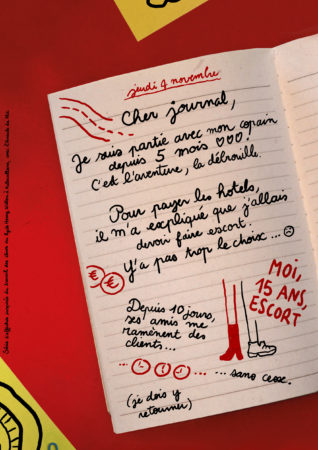 jeudi 4 novembre
Cher journal,
Je suis partie avec mon copain
depuis 5 mois ♡♡♡!
C'est l'aventure, la débrouille.
Pour payer les hotels,
il m'a expliqué que j'allais
devoir faire escort.
Y'a pas trop le choix... ☹
€
€
Depuis 10 jours,
ses amis me
ramènent des
clients...
... sans cesse.
(je dois y
retourner)
MOI,
15 ANS,
ESCORT